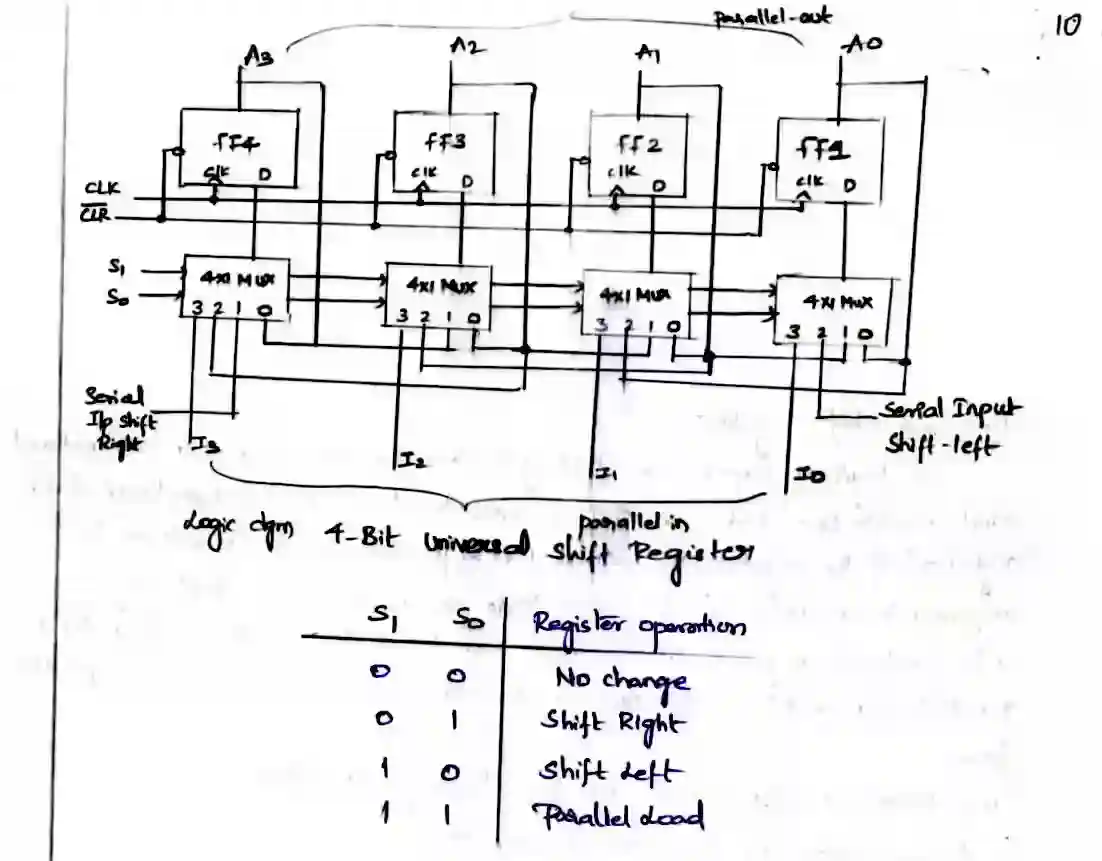 parallel-out
10
A3 A2 A1 A0
FF4 FF3 FF2 FF1
clk D clk D clk D clk D
CLK
CLR
S1
S0
4x1 Mux 4x1 Mux 4x1 Mux 4x1 Mux
3 2 1 0 3 2 1 0 3 2 1 0 3 2 1 0
Serial
I/p shift
Right
Serial Input
Shift-left
I3 I2 I1 I0
parallel in
Logic dgm 4-Bit Universal Shift Register
S1 S0 Register operation
0 0 No change
0 1 Shift Right
1 0 Shift Left
1 1 Parallel Load